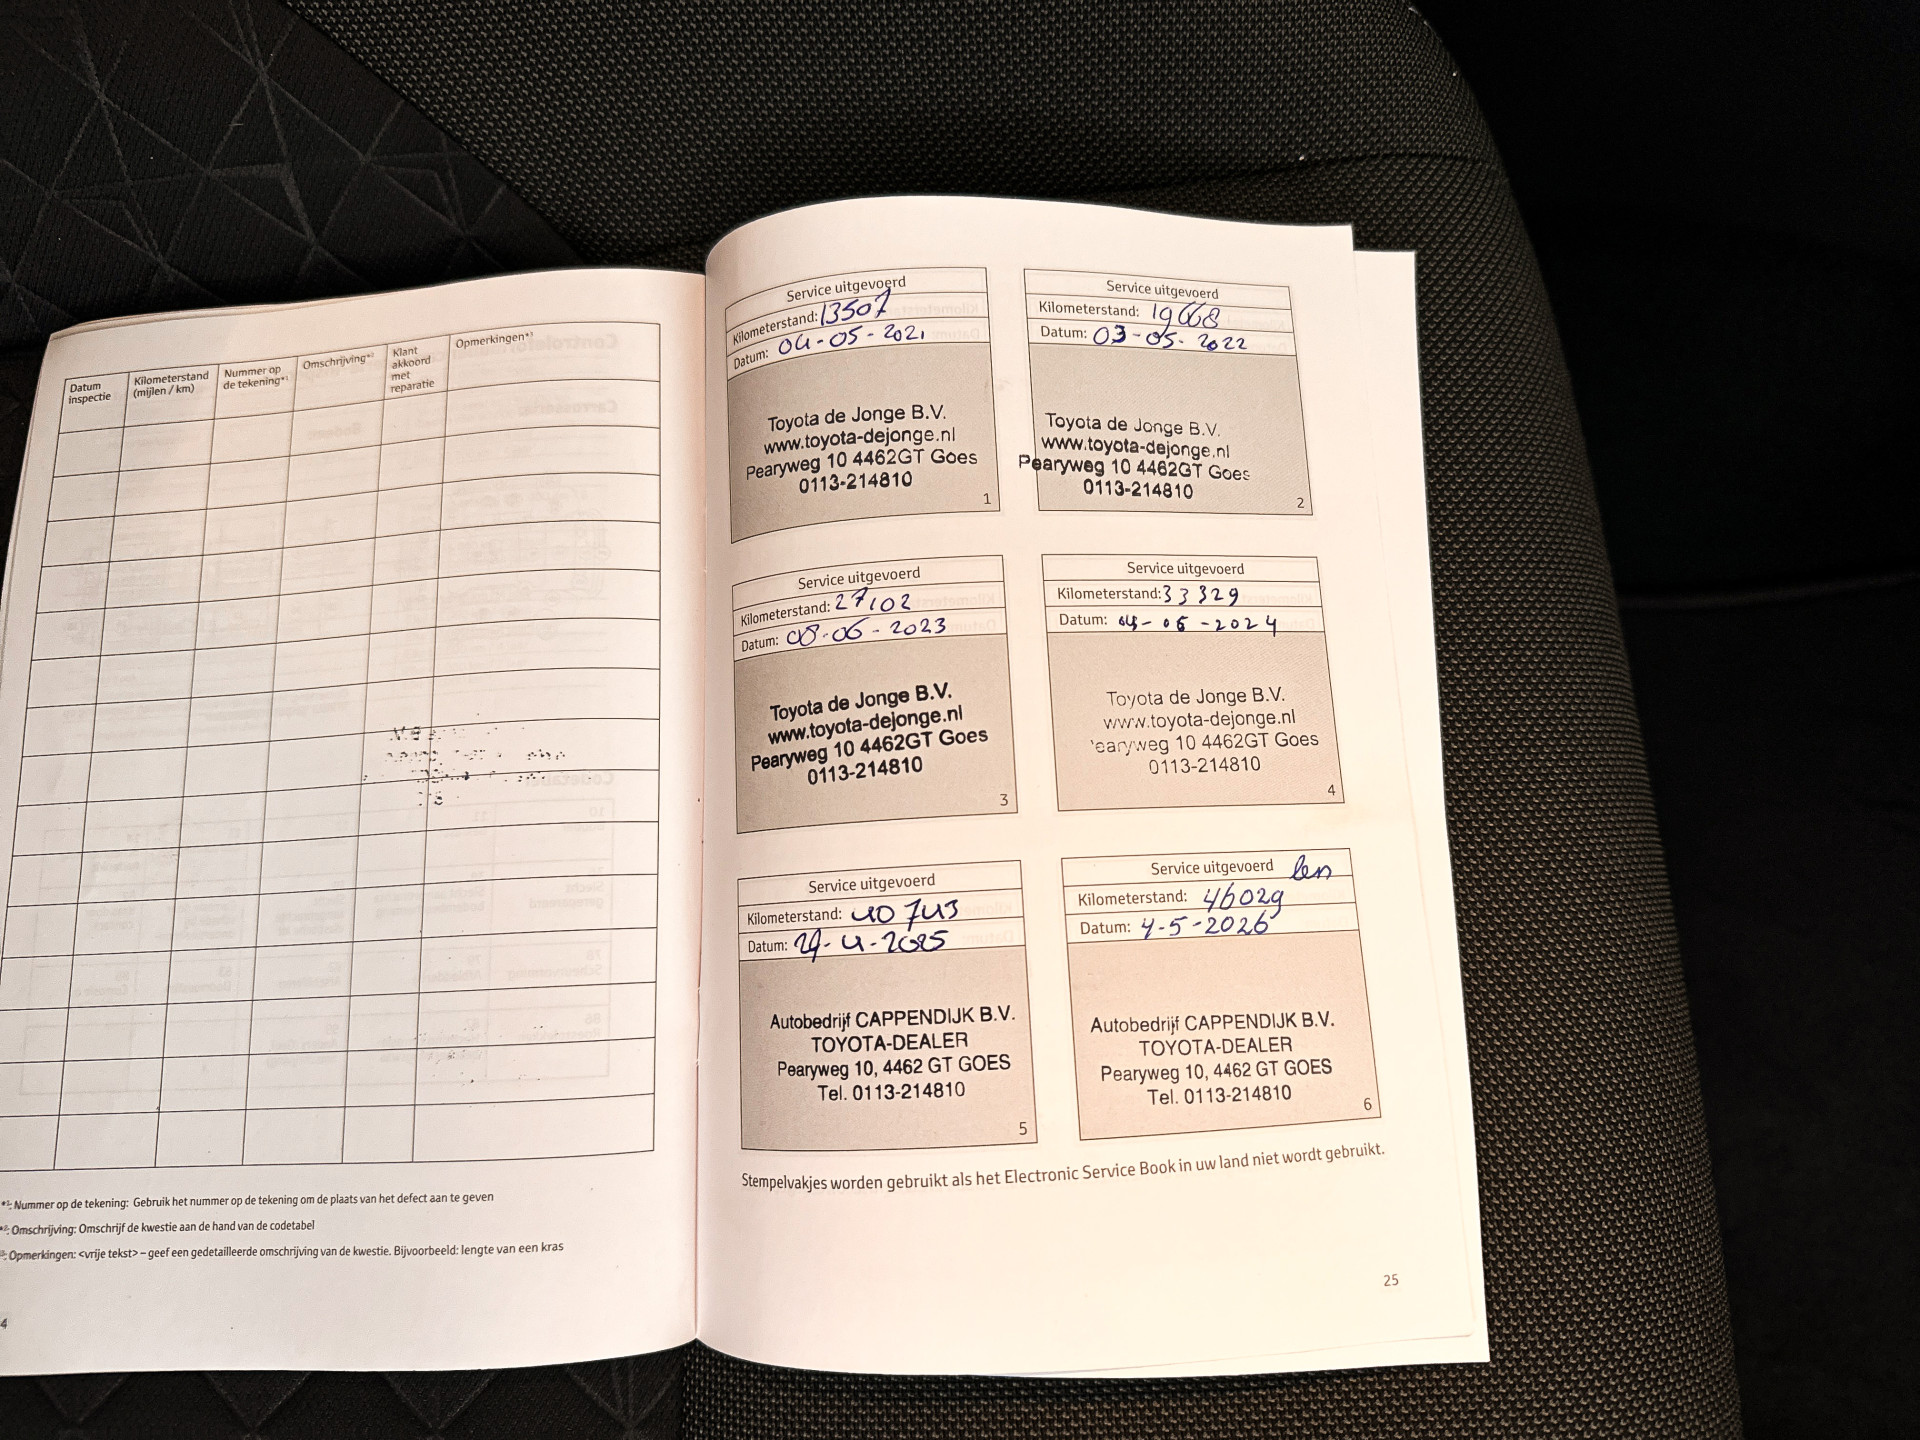 Datum inspectie
Kilometerstand (mijlen / km)
Nummer op de tekening*1
Omschrijving*2
Klant akkoord met reparatie
Opmerkingen*3
*1: Nummer op de tekening: Gebruik het nummer op de tekening om de plaats van het defect aan te geven
*2: Omschrijving: Omschrijf de kwestie aan de hand van de codetabel
*3: Opmerkingen: <vrije tekst> – geef een gedetailleerde omschrijving van de kwestie. Bijvoorbeeld: lengte van een kras
4
Service uitgevoerd
Kilometerstand: 13507
Datum: 04-05-2021
Toyota de Jonge B.V.
www.toyota-dejonge.nl
Pearyweg 10 4462GT Goes
0113-214810
1
Service uitgevoerd
Kilometerstand: 19668
Datum: 03-05-2022
Toyota de Jonge B.V.
www.toyota-dejonge.nl
Pearyweg 10 4462GT Goes
0113-214810
2
Service uitgevoerd
Kilometerstand: 27102
Datum: 08-06-2023
Toyota de Jonge B.V.
www.toyota-dejonge.nl
Pearyweg 10 4462GT Goes
0113-214810
3
Service uitgevoerd
Kilometerstand: 33329
Datum: 04-06-2024
Toyota de Jonge B.V.
www.toyota-dejonge.nl
earyweg 10 4462GT Goes
0113-214810
4
Service uitgevoerd
Kilometerstand: 40743
Datum: 29-4-2025
Autobedrijf CAPPENDIJK B.V.
TOYOTA-DEALER
Pearyweg 10, 4462 GT GOES
Tel. 0113-214810
5
Service uitgevoerd
Kilometerstand: 46029
Datum: 4-5-2026
Autobedrijf CAPPENDIJK B.V.
TOYOTA-DEALER
Pearyweg 10, 4462 GT GOES
Tel. 0113-214810
6
Stempelvakjes worden gebruikt als het Electronic Service Book in uw land niet wordt gebruikt.
25